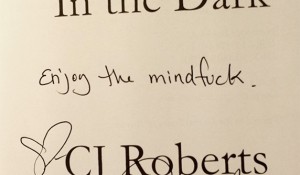 In the Dark
Enjoy the mindfuck.
CJ Roberts